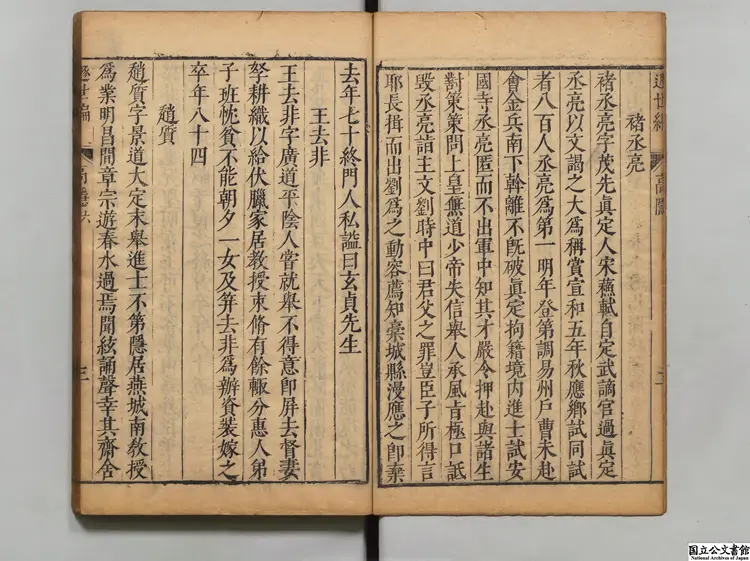 遯世編
高隱
褚丞亮
褚丞亮字茂先眞定人宋蘓軾自定武謫官過眞定
丞亮以文謁之大為稱賞宣和五年秋應鄉試同試
者八百人丞亮為第一明年登第調易州戶曹未赴
會金兵南下斡離不旣破眞定拘籍境內進士試安
國寺丞亮匿而不出軍中知其才嚴令押赴與諸生
對策策問上皇無道少帝失信舉人承風肯極口詆
毀丞亮詣主文劉時中曰君父之罪豈臣子所得言
耶長揖而出劉為之動容薦知藁城縣漫應之卽棄
去年七十終門人私謚曰玄貞先生
王去非
王去非字廣道平陰人嘗就舉不得意卽屏去督妻
孥耕織以給伏臘家居教授束脩有餘輙分惠人弟
子班忱貧不能朝夕一女及笄去非為辦資裝嫁之
卒年八十四
趙質
趙質字景道大定末舉進士不第隱居燕城南教授
為業明昌間章宗遊春水過焉聞絃誦聲幸其齋舍
遯世編
六
三
国立公文書館
National Archives of Japan